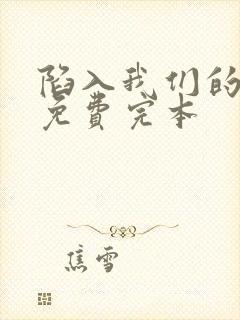 陷入我们的
免费完本
焦雪